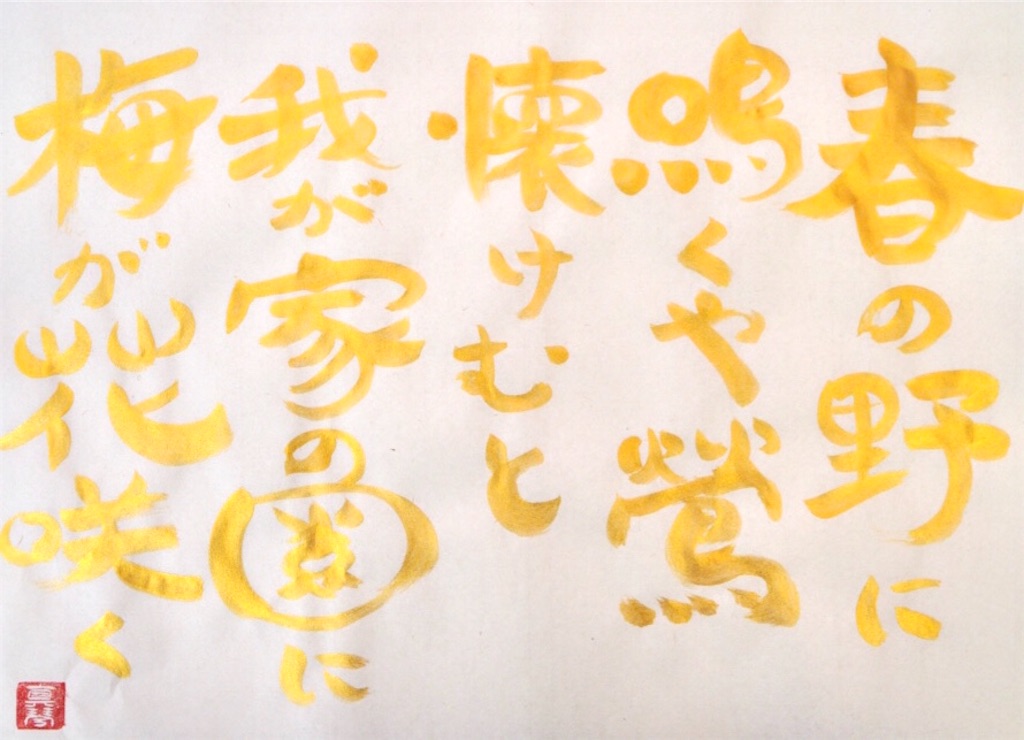 春の野に
鳴くや鶯
懐けむと
我が家の園に
梅が花咲く
真琴